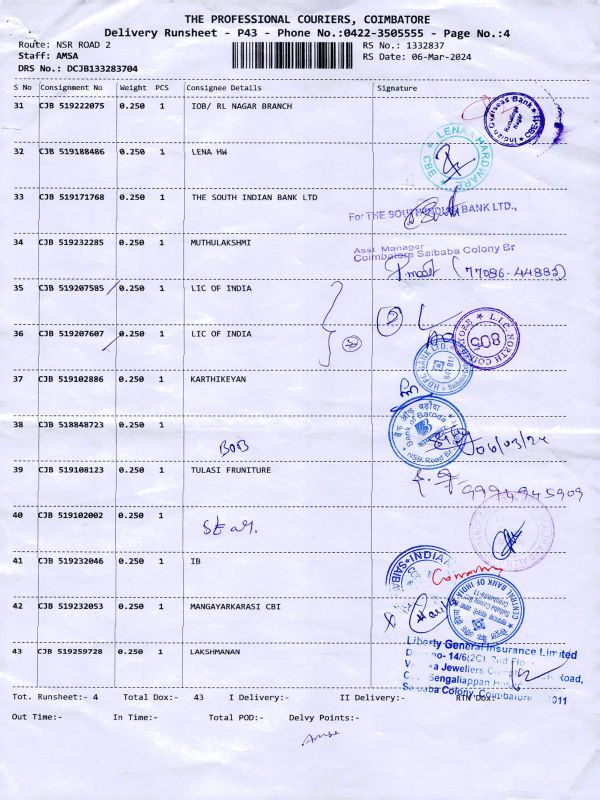 THE PROFESSIONAL COURIERS, COIMBATORE
Delivery Runsheet - P43 - Phone No.:0422-3505555 - Page No.:4
Route: NSR ROAD 2 RS No.: 1332837
Staff: AMSA RS Date: 06-Mar-2024
DRS No.: DCJB133283704
S No Consignment No Weight PCS Consignee Details Signature
31 CJB 519222075 0.250 1 IOB/ RL NAGAR BRANCH
Indian Overseas Bank
32 CJB 519188486 0.250 1 LENA HW
LENA HARDWARE CBE
33 CJB 519171768 0.250 1 THE SOUTH INDIAN BANK LTD
For THE SOUTH INDIAN BANK LTD.,
34 CJB 519232285 0.250 1 MUTHULAKSHMI
Asst. Manager
Coimbatore Saibaba Colony Br
(77086-44883)
35 CJB 519207585 0.250 1 LIC OF INDIA
L.I.C. NORTH COIMBATORE 805
36 CJB 519207607 0.250 1 LIC OF INDIA
HDFC BANK LTD.
37 CJB 519102886 0.250 1 KARTHIKEYAN
38 CJB 518848723 0.250 1
बैंक ऑफ़ बड़ौदा
Bank of Baroda
NSR Road Br
BOB
06/03/24
39 CJB 519108123 0.250 1 TULASI FRUNITURE
9994945909
40 CJB 519102002 0.250 1
41 CJB 519232046 0.250 1 IB
42 CJB 519232053 0.250 1 MANGAYARKARASI CBI
CENTRAL BANK OF INDIA
43 CJB 519259728 0.250 1 LAKSHMANAN
Liberty General Insurance Limited
14/6(2C), 2nd
Jewellers Road,
Sengaliappan
Saibaba Colony, Coimbatore 011
Tot. Runsheet:- 4 Total Dox:- 43 I Delivery:- II Delivery:- RTN Dox:-
Out Time:- In Time:- Total POD:- Delvy Points:-